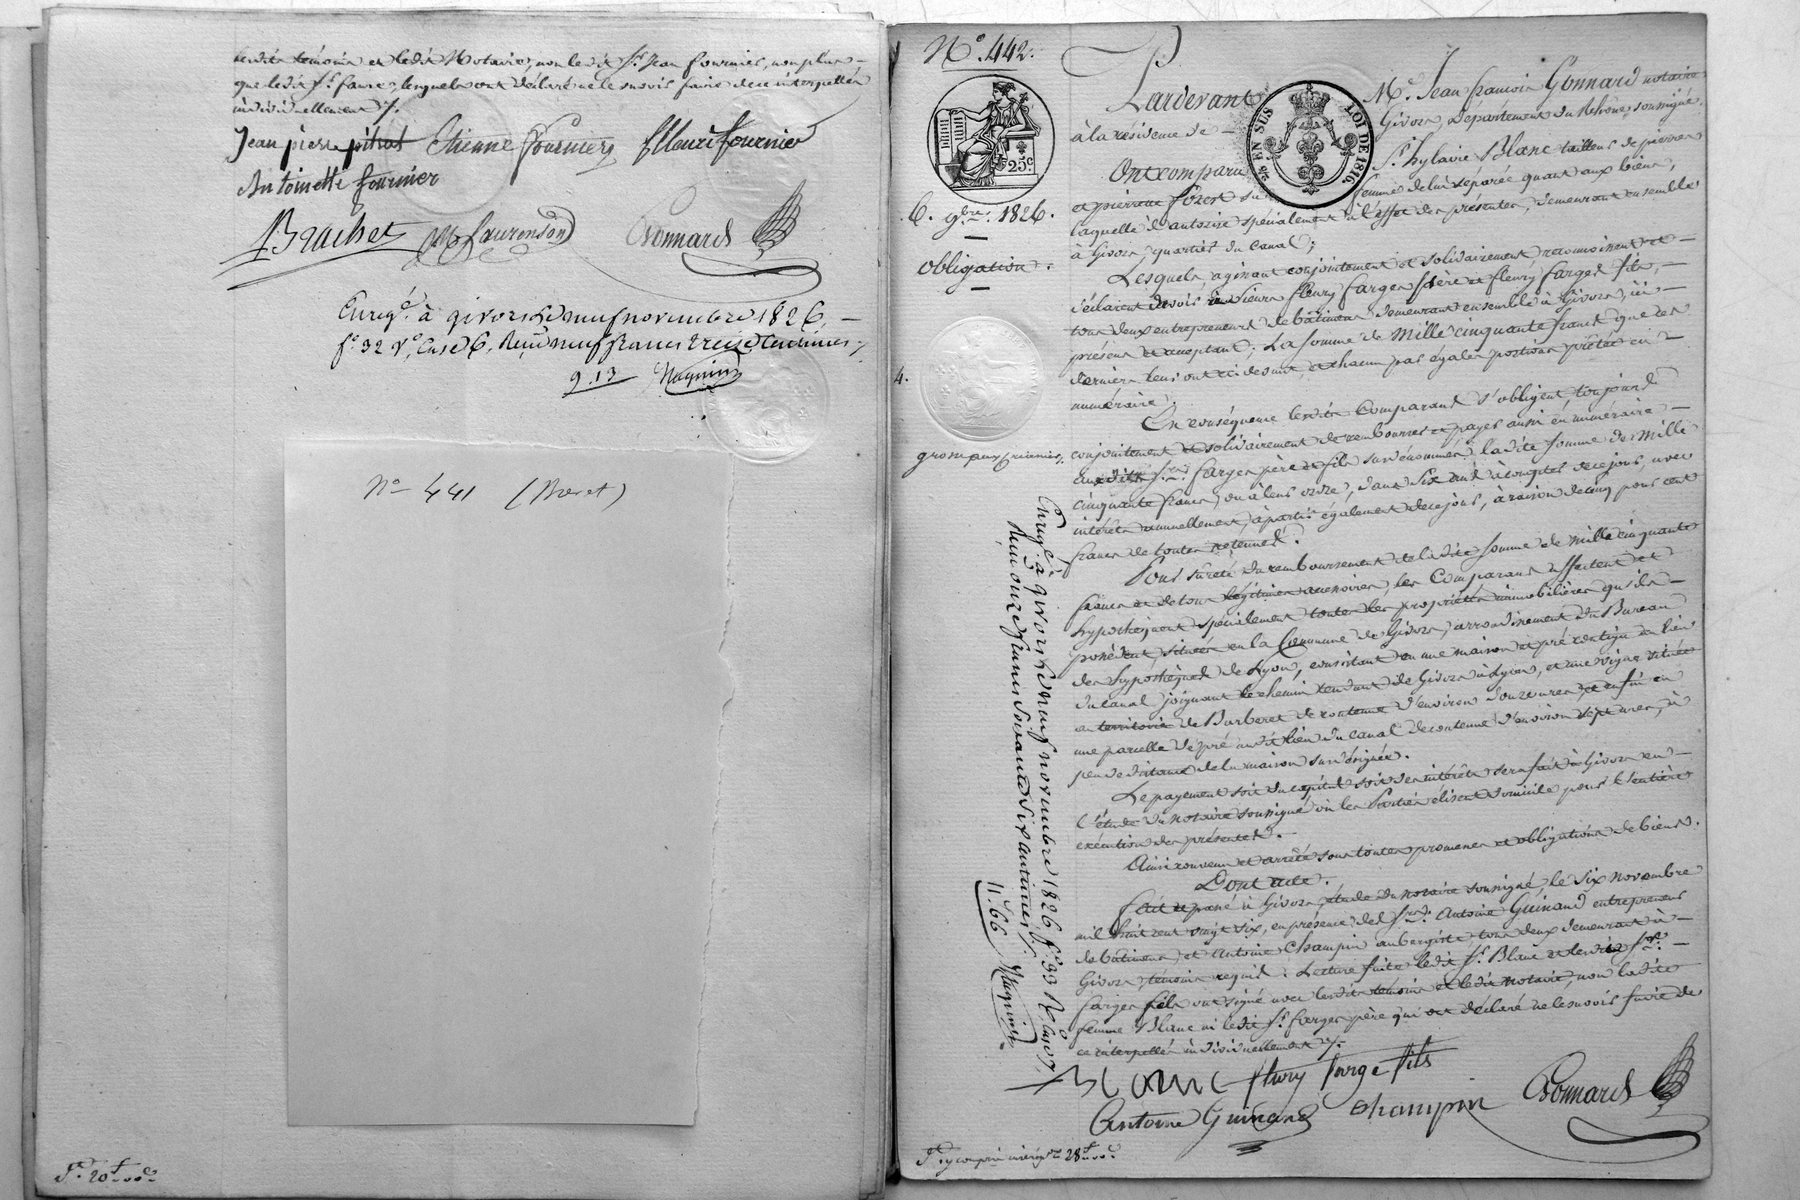 lesdits témoins et ledit Notaire, non ledit Sr. Jean fournier, non plus
que ledit Sr. faure, lesquels ont déclaré ne le savoir faire de ce interpellés
individuellement ./.
Jean pierre pitrat Etienne fournier fleuri fournier
Antoinette fournier
Brachet Laurenson Gonnard
Enregé. à givors le neuf novembre 1826,
fo. 32 Vo. Case 6. Reçu neuf francs treize centimes
9.13 Magnin
No 441 (Brevet)
No. 442.
Pardevant Me. Jean francois Gonnard notaire
à la résidence de Givors, Département du Rhône, soussigné.
25c.
2/10 EN SUS LOI DE 1816.
Ont comparu Sr. hylaire Blanc tailleur de pierres
et pierrette forest sa femme de lui séparée quant aux biens,
laquelle il autorise spécialement à l'effet des présentes, demeurant ensemble
à Givors, quartier du Canal;
6. 9bre. 1826.
obligation.
Lesquels, agissant conjointement et solidairement, reconnoissent et
déclarent devoir aux sieurs fleury farges père et fleury farges fils,
tous deux entrepreneurs de bâtimens, demeurant ensemble à Givors, ici
présens et acceptant; La somme de Mille cinquante francs que ces
derniers leur ont ci devant, et chacun par égales portions prêtée en
numéraire.
4.
En conséquence lesdits Comparans s'obligent, toujours
conjointement et solidairement de rembourser et payer aussi en numéraire
auxdits Srs. farges père et fils susnommés, ladite somme de Mille
cinquante francs, ou à leur ordre, dans six ans à compter de ce jour, avec
intérêts annuellement, à partir également de ce jour, à raison de cinq pour cent
francs de toutes retenues.
grosse aux créanciers ./.
Pour sûreté du remboursement de ladite somme de mille cinquante
francs et de tous légitimes accessoires, les Comparans affectent et
hypothèquent spécialement toutes les propriétés immobilières qu'ils
possèdent, situées en la Commune de Givors, arrondissement du Bureau
des hypothèques de Lyon, consistant en une maison et pré contigu au lieu
du Canal, joignant le chemin tendant de Givors à Lyon, et une vigne située
en territoire de Barberet de contenue d'environ douze ares, et enfin en
une parcelle de pré audit lieu du canal de contenue d'environ sept ares, à
peu de distance de la maison sus désignée.
Le payement soit du capital soit des intérêts sera fait à Givors en
l'étude du notaire soussigné où les Parties élisent domicile pour l'entière
exécution des présentes.
Ainsi convenu et arrêté sous toutes promesses et obligations de biens.
Dont acte.
fait et passé à Givors, étude du notaire soussigné, le six novembre
mil huit cent vingt six, en présence des Srs. Antoine Guinand entrepreneur
de bâtimens, et Antoine Champin aubergiste tous deux demeurant à
Givors, témoins requis; Lecture faite ledit Sr. Blanc et lesdits Sr.
farges fils ont signé avec lesdits témoins et ledit notaire, non ladite
femme Blanc ni ledit Sr. farges père qui ont déclaré ne le savoir faire de
ce interpellés individuellement ./.
Enregé. à givors le neuf novembre 1826 fo. 33 Ro. case 7,
Reçu onze francs soixante six centimes ./.
11.66 Magnin
Blanc fleury farge fils
Antoine Guinand champin Gonnard